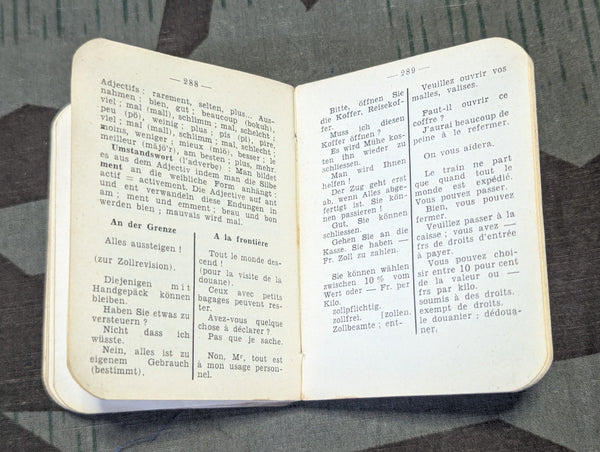 — 288 —
Adjectifs : rarement, selten, plus... Aus-
nahmen ; bien, gut ; beaucoup (bokuh),
viel ; mal (mall), schlimm ; mal, schelcht ;
peu (pö), weinig ; plus ; pis (pi), pire,
viel ; mal (mall), schlimm ; mal, schlecht ;
moins, weniger ; mieux (miö), besser ; le
meilleur (mäjö'r), am besten ; plus, mehr.
Umstandswort (l'adverbe) : Man bildet
es aus dem Adjectiv indem man die Silbe
ment an die weibliche Form anhängt :
actif = activement. Die Adjective auf ant
und ent verwandeln diese Endungen in
am ; ment und emment ; beau und bon
werden bien ; mauvais wird mal.
An der Grenze
Alles aussteigen !
(zur Zollrevision).
Diejenigen mit
Handgepäck können
bleiben.
Haben Sie etwas zu
versteuern ?
Nicht dass ich
wüsste.
Nein, alles ist zu
eigenem Gebrauch
(bestimmt).
A la frontière
Tout le monde des-
cend !
(pour la visite de la
douane).
Ceux avec petits
bagages peuvent res-
ter.
Avez-vous quelque
chose à déclarer ?
Pas que je sache.
Non, Mr, tout est
à mon usage person-
nel.
— 289 —
Bitte, öffnen Sie
die Koffer, Reisekof-
fer.
Muss ich diesen
Koffer öffnen ?
Es wird Mühe kos-
ten ihn wieder zu
schliessen.
Man wird Ihnen
helfen !
Der Zug geht erst
ab, wenn Alles abge-
fertigt ist. Sie kön-
nen passieren !
Gut, Sie können
schliessen.
Gehen Sie an die
Kasse. Sie haben —
Fr. Zoll zu zahlen.
Sie können wählen
zwischen 10 % vom
Wert oder — Fr. per
Kilo.
zollpflichtig.
zollfrei. [zollen.
Zollbeamte ; ent-
Veuillez ouvrir vos
malles, valises.
Faut-il ouvrir ce
coffre ?
J'aurai beaucoup de
peine à le refermer.
On vous aidera.
Le train ne part
que quand tout le
monde est expédié.
Vous pouvez passer.
Bien, vous pouvez
fermer.
Veuillez passer à la
caisse ; vous avez —
frs de droits d'entrée
à payer.
Vous pouvez choi-
sir entre 10 pour cent
de la valeur ou —
frs par kilo.
soumis à des droits.
exempt de droits.
le douanier ; dédoua-
ner.